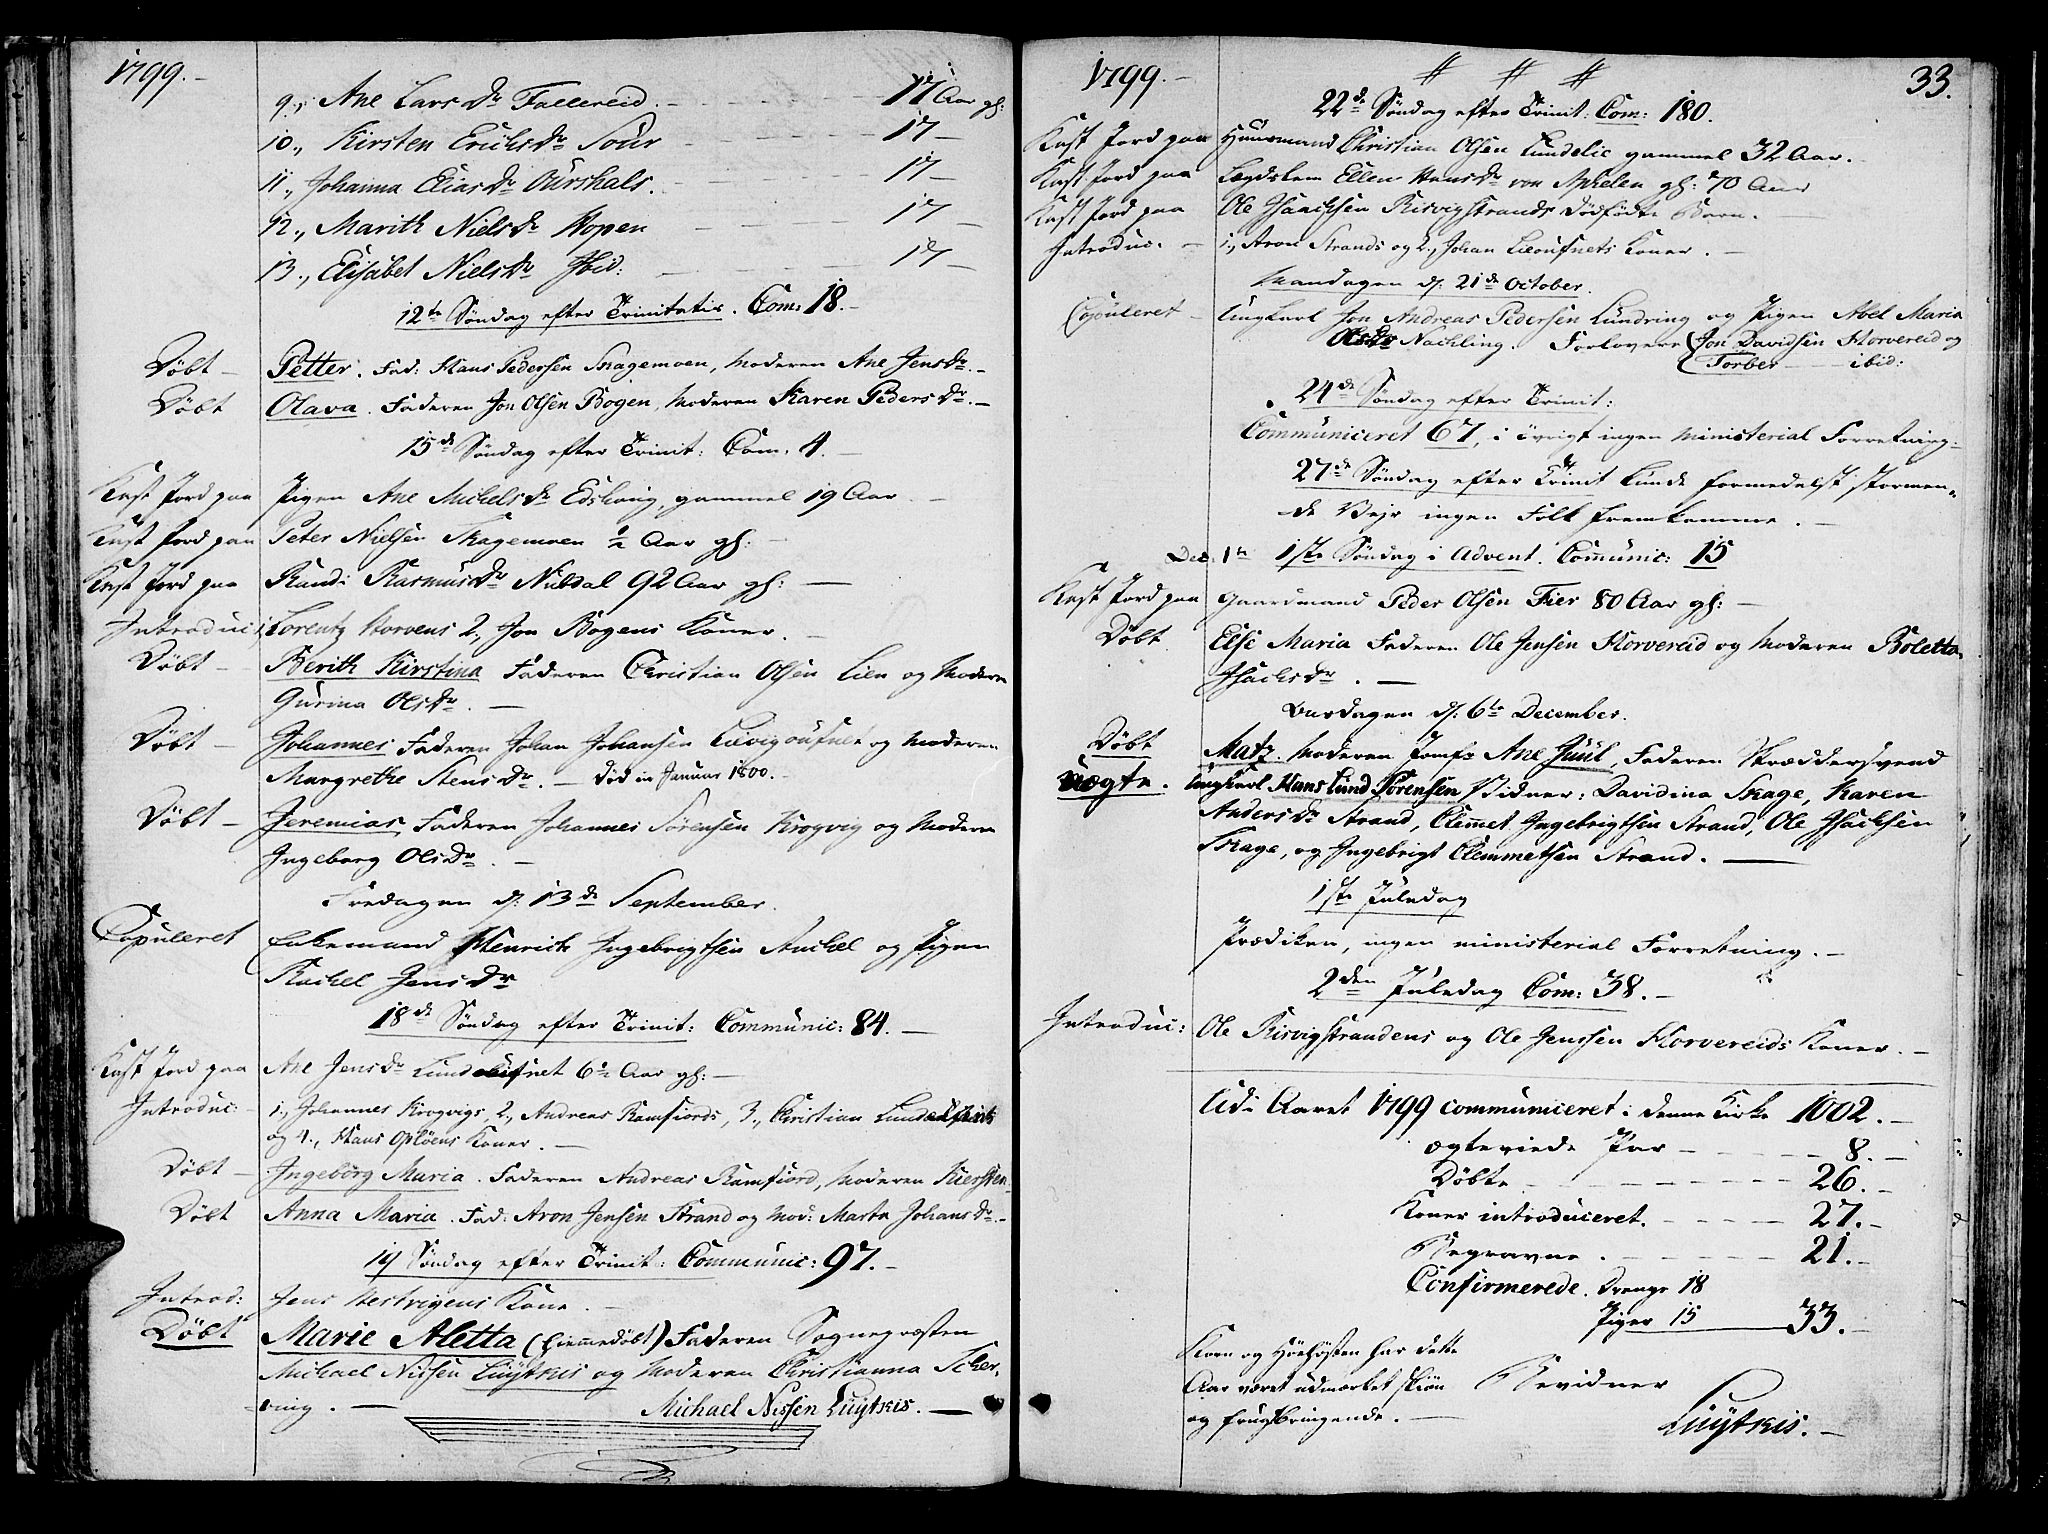 1799.-
9., Ane Lars Dr Fallereid. - 17 Aar gl:
10., Kirsten Erichs Dr Sour - 17 -
11., Johanna Elias Dr Ourshals. - 17 -
12., Marith Niels Dr Hopen - 17 -
13., Elisabet Niels Dr Ibid: - 17 -
12te Søndag efter Trinitatis. Com: 18.-
Døbt - Petter. Fad: Hans Pedersen Snagemoen, Moderen Ane Jens Dr.-
Døbt Olava. Faderen Jon Olsen Bogen, Moderen Karen Peders Dr.-
15de Søndag efter Trinit: Com: 4. -
Kast Jord paa Pigen Ane Michels Dr Edshoug, gammel 19 Aar. -
Kast Jord paa Peter Nielsen Skagemoen ½ Aar gl: -
Kast Jord paa Randi Rasmus Dr Nubdal 92 Aar gl: -
Introduc: 1, Lorentz Horvens 2., Jon Bogens Koner. -
Døbt - Berith Kirstina Faderen Christian Olsen Lien og Moderen
Gurina Ols Dr. -
Døbt - Johannes Faderen Johan Johansen Lievigoufnet og Moderen
Margrethe Stens Dr. - død in Januar 1800. -
Døbt - Jeremias, Faderen Johannes Sørensen Krogvig og Moderen
Ingeborg Ols Dr. -
Fredagen d: 13de September.
Copuleret Enkemand Henrich Ingebrigtsen Auchel og Pigen
Rachel Jens Dr
18de Søndag efter Trinit: Communic: 84. -
Kast Jord paa Ane Jens Dr 6½ Aar gl: -
Introduc: 1., Johannes Krogvigs, 2., Andreas Ramfiords, 3., Christian
og 4., Hans Opløens Koner. -
Døbt - Ingebörg Maria. Faderen Andreas Ramfiord, Moderen Kiersten
Døbt Anna Maria. Fad: Aron Jensen Strand og Mod: Marta Johans Dr.-
19 Søndag efter Trinit: Communic: 97. -
Introd: Jens Hestvigens Kone. -
Døbt Marie Aletta (hiemmedøbt) Faderen Sognepræsten
Michael Nissen Luytkis og Moderen Christianna Scher-
ring. - Michael Nissen Luytkis. -
1799. - # # # 33.
22de Søndag efter Trinit: Com: 180.
Kast Jord paa Huusmand Christian Olsen Lundelie gammel 32 Aar. -
Kast Jord paa Lægdslem Ellen Hans Dr von Aphelen gl: 70 Aar
Kast Jord paa Ole Isachsen Risvigstrands Dødfødte Barn. -
Introduc: - 1., Aron Strands og 2., Johan Lieoufnets Koner. -
Mandagen d: 21de October.
Copuleret - Ungkarl Jon Andreas Pedersen Lundring og Pigen Abel Maria
Ols Dr Nachling. Forlovere (Jon Davidsen Horvereid og
Torber - ibid:
24de Søndag efter Trinit:
Communiceret 67, i övrigt ingen Ministerial Forretning:
27de Søndag efter Trinit kunde formedelst stormen-
de Vejr ingen Folk fremkomme. -
Dec. 1te 1ste Søndag i Advent. Communic: 15
Kast Jord paa Gaardmand Peder Olsen Fier 80 Aar gl: -
Døbt Else Maria Faderen Ole Jensen Horvereid og Moderen Boletta
Isachs Dr. -
d: 6te December.
Døbt Matz. Moderen Jomfr Ane Juul, Faderen Skræddersvend
Uægte. Ungkarl Hans Lund Sörensen Vidner: Davidina Skage, Karen
Anders Dr Strand, Clemet Ingebrigtsen Strand, Ole Isachsen
Skage, og Ingebrigt Clemmetsen Strand. -
1ste Juledag
Prædiken, ingen ministerial Forretning. -
2den Juledag Com: 38. -
Introduc: Ole Risvigstrandens og Ole Jenssen Horvereids Koner. -
Udi Aaret 1799 communiceret i denne Kirke 1002. -
ægteviede Par - 8. -
Døbte - 26. -
Koner introduceret. - 27. -
Begravne. - 21. -
Confirmerede. Drenge 18
Piger 15 - 33. -
Korn og Höehösten har dette
Aar været udmærket skiön Bevidner
og frugtbringende. - Luytkis. -